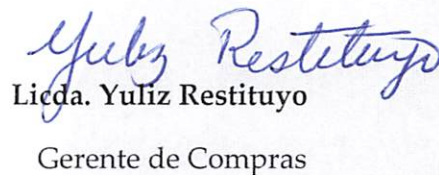 Yuliz Restituyo
Licda. Yuliz Restituyo
Gerente de Compras